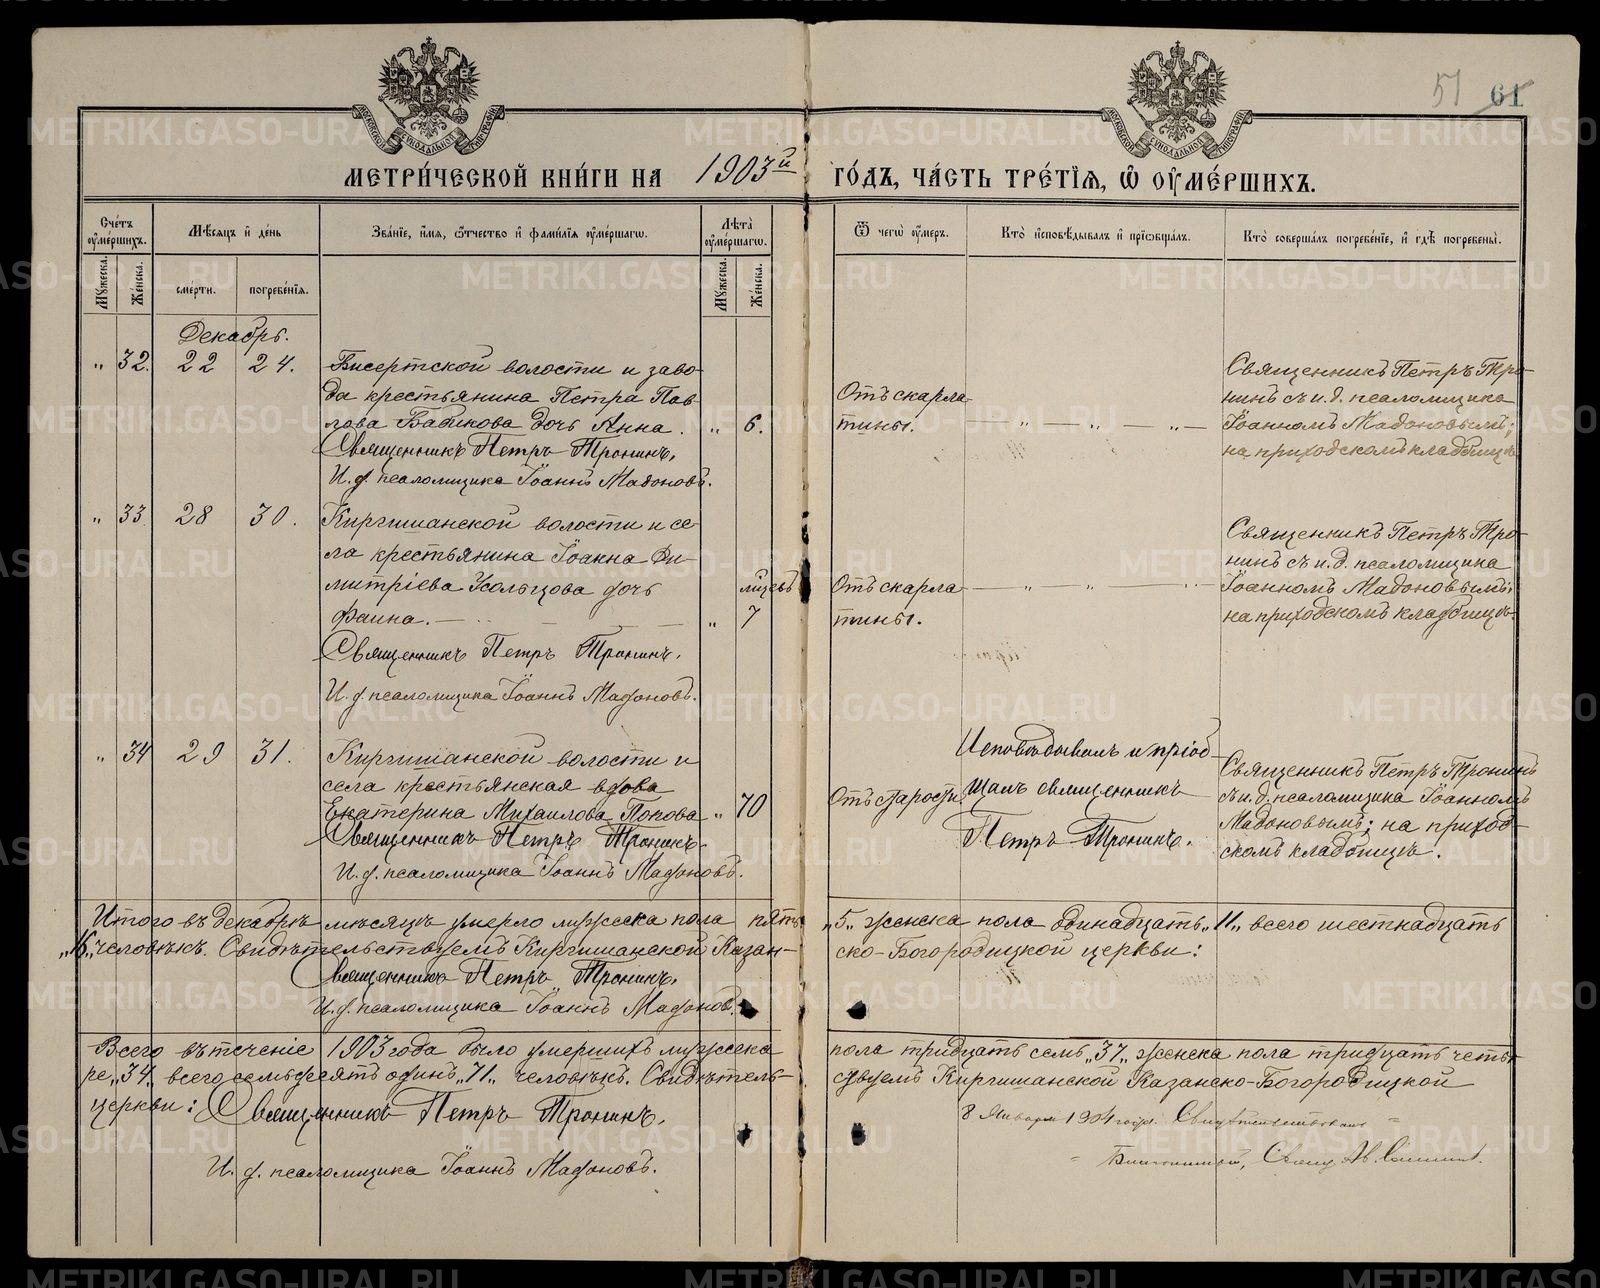 51 61
МЕТРИ́ЧЕСКОЙ КНИ́ГИ НА 1903й ГО́ДЪ, ЧА́СТЬ ТРЕ́ТІѦ, Ѡ҆ ОУ҆МЕ́РШИХЪ.
Сче́тъ оу҆ме́ршихъ.
Мѣ́сяцъ и҆ де́нь
Зва́нїе, и҆́мѧ, ѻ҆́тчество и҆ фами́лїѧ оу҆ме́ршагѡ.
Лѣ́та оу҆ме́ршагѡ.
Ѿ чегѡ̀ оу҆́меръ.
Кто̀ и҆сповѣ́дывалъ и҆ прїѡбща́лъ.
Кто̀ соверша́лъ погребе́нїе, и҆ гдѣ̀ погребены̀.
Мꙋ́жеска.
Же́нска.
сме́рти.
погребе́нїѧ.
Мꙋ́жеска.
Же́нска.
Декабрь.
" 32. 22 24. Бисертской волости и заво-
да крестьянина Петра Пав-
лова Бабикова дочь Анна. " 6.
Священникъ Петръ Тронинъ.
И. д. псаломщика Іоаннъ Мадоновъ.
Отъ скарла-
тины. — " — " — " —
Священникъ Петръ Тро-
нинъ съ и. д. псаломщика
Іоанномъ Мадоновымъ;
на приходскомъ кладбищѣ
" 33. 28 30. Киргишанской волости и се-
ла крестьянина Іоанна Ди-
митріева Усольцова дочь
Фаина. — " 7
мѣсцевъ
Священникъ Петръ Тронинъ.
И. д. псаломщика Іоаннъ Мадоновъ.
Отъ скарла-
тины. — " " "
Священникъ Петръ Тро-
нинъ съ и. д. псаломщика
Іоанномъ Мадоновымъ;
на приходскомъ кладбищѣ.
" 34 29 31. Киргишанской волости и
села крестьянская вдова
Екатерина Михаилова Попова " 70
Священникъ Петръ Тронинъ.
И. д. псаломщика Іоаннъ Мадоновъ.
Отъ старости.
Исповѣдывалъ и пріоб-
щалъ священникъ
Петръ Тронинъ.
Священникъ Петръ Тронинъ
съ и. д. псаломщика Іоанномъ
Мадоновымъ; на приход-
скомъ кладбищѣ.
Итого въ декабрѣ мѣсяцѣ умерло мужеска пола пять „5„ женска пола одинадцать „11„ всего шестнадцать
„16„ человѣкъ. Свидѣтельствуемъ Киргишанской Казан-ско-Богородицкой церкви:
Священникъ Петръ Тронинъ.
И. д. псаломщика Іоаннъ Мадоновъ.
Всего въ теченіе 1903 года было умершихъ мужеска пола тридцать семь „37„ женска пола тридцать четы-
ре „34„ всего семьдесятъ одинъ „71„ человѣкъ. Свидѣтель-ствуемъ Киргишанской Казанско-Богородицкой
церкви: Священникъ Петръ Тронинъ.
И. д. псаломщика Іоаннъ Мадоновъ.
8 Января 1904 года.